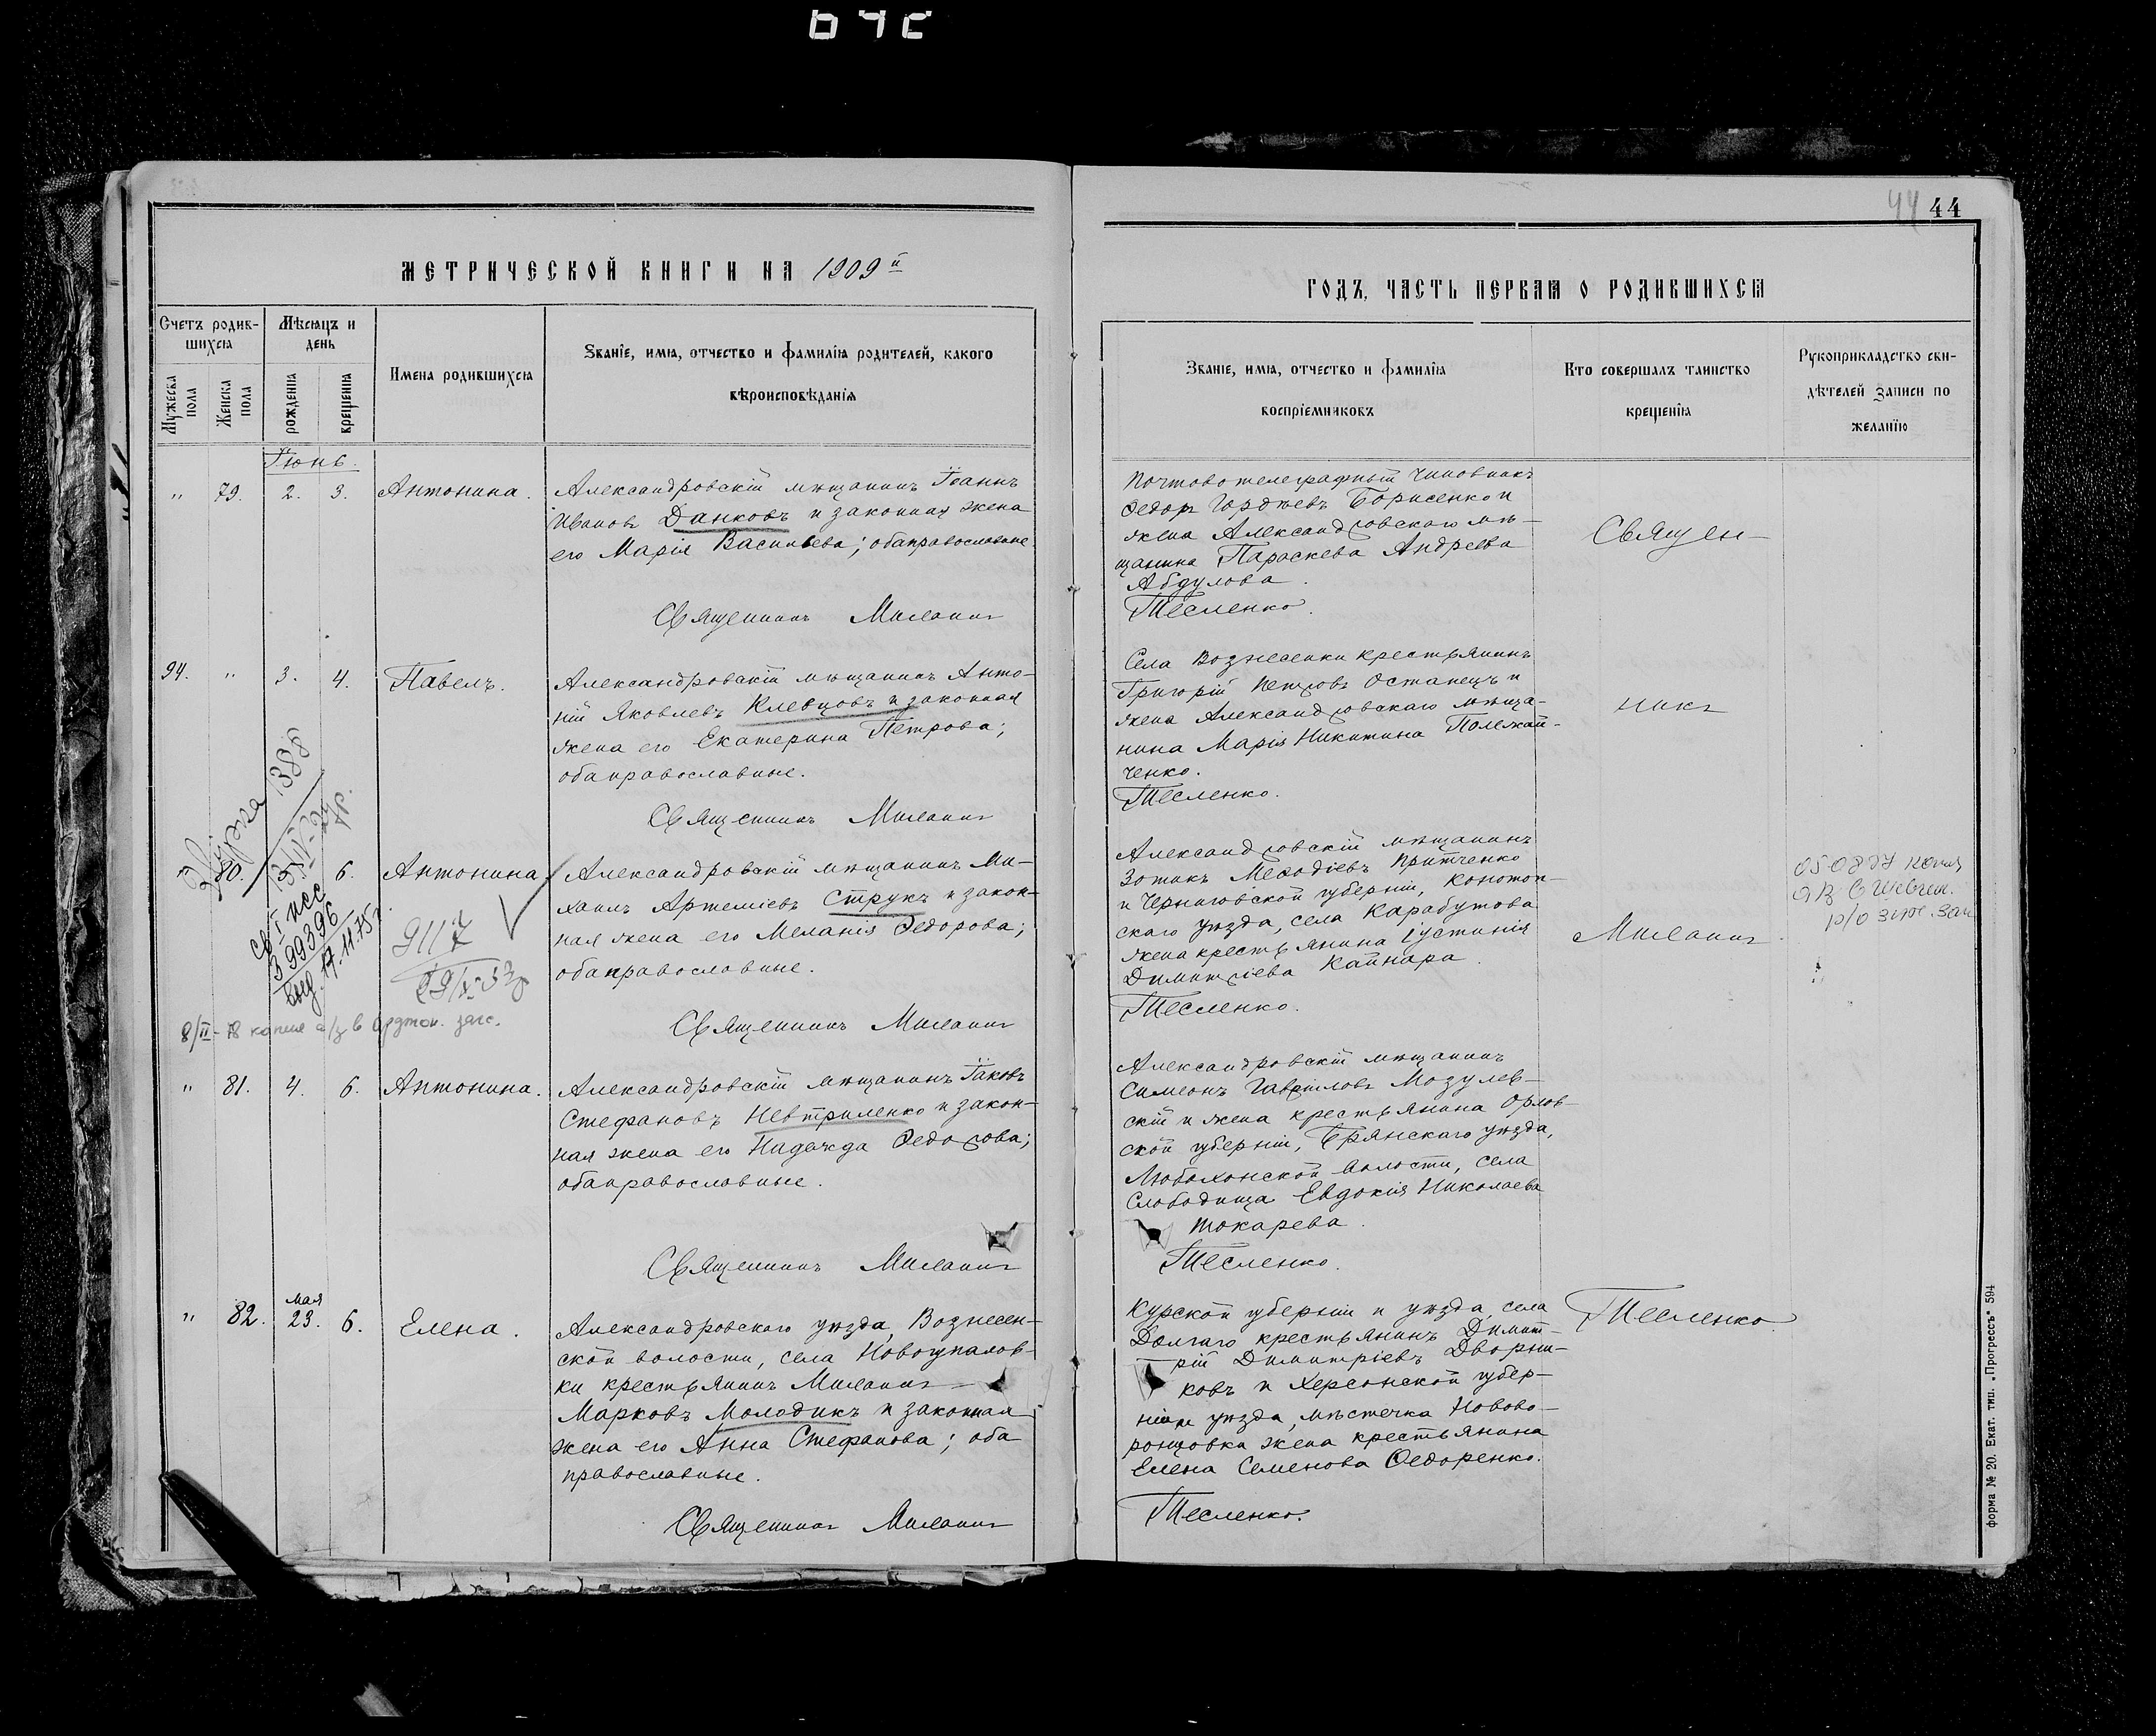 44 44
МЕТРИЧЕСКОЙ КНИГИ НА 1909 й
ГОДЪ, ЧАСТЬ ПЕРВАЯ О РОДИВШИХСЯ
Счетъ родив-
шихся
Мужеска пола
Женска пола
Мѣсяцъ и день
рожденія
крещенія
Имена родившихся
Званіе, имя, отчество и фамилія родителей, какого
вѣроисповѣданія
Званіе, имя, отчество и фамилія
воспріемниковъ
Кто совершалъ таинство
крещенія
Рукоприкладство сви-
дѣтелей записи по
желанію
Іюнь.
" 79. 2. 3. Антонина.
Александровскій мѣщанинъ Іоаннъ
Ивановъ Данковъ и законная жена
его Марія Васильева; оба православные.
Священникъ
Почтово телеграфный чиновникъ
Ѳедоръ Гордѣевъ Борисенко и
жена Александровскаго мѣ-
щанина Параскева Андреева
Абдулова.
Тесленко.
Священ-
94. " 3. 4. Павелъ.
Александровскій мѣщанинъ Анто-
ній Яковлевъ Клевцовъ и законная
жена его Екатерина Петрова;
оба православные.
Священникъ
Села Вознесенки крестьянинъ
Григорій Петровъ Останецъ и
жена Александровскаго мѣща-
нина Марія Никитина Полежай-
ченко.
Тесленко.
никъ
1388
80. 6. Антонина
св I нсс
399396
выд. 17.11.75г.
9117
8/II-78 копия а/з в Орджон. загс.
Александровскій мѣщанинъ Ми-
хаилъ Артеміевъ Струкъ и закон-
ная жена его Меланія Ѳедорова;
оба православные.
Священникъ
Александровскій мѣщанинъ
Зотикъ Меѳодіевъ Притченко
и Черниговской губерніи, Конотоп-
скаго уѣзда, села Карабутова
жена крестьянина Іустинія
Димитріева Кайнара.
Тесленко.
" 81. 4. 6. Антонина.
Александровскій мѣщанинъ Іаковъ
Стефановъ Невтриленко и закон-
ная жена его Надежда Ѳедорова;
оба православные.
Священникъ
Александровскій мѣщанинъ
Симеонъ Гавріиловъ Мозулев-
скій и жена крестьянина Орлов-
ской губерніи, Брянскаго уѣзда,
Любохонской волости, села
Слободища Евдокія Николаева
Токарева.
Тесленко.
" 82. мая 23. 6. Елена.
Александровскаго уѣзда, Вознесен-
ской волости, села Новогупалов-
ки крестьянинъ
Марковъ Молодикъ и законная
жена его Анна Стефанова; оба
православные.
Священникъ
Курской губерніи и уѣзда, села
Долгаго крестьянинъ Димит-
рій Димитріевъ Дворни-
ковъ и Херсонской губер-
ніи и уѣзда, мѣстечка Ново­во-
ронцовки жена крестьянина
Елена Семенова Ѳедоренко.
Тесленко.
Тесленко.
Форма № 20. Екат. тип. „Прогрессъ" 594